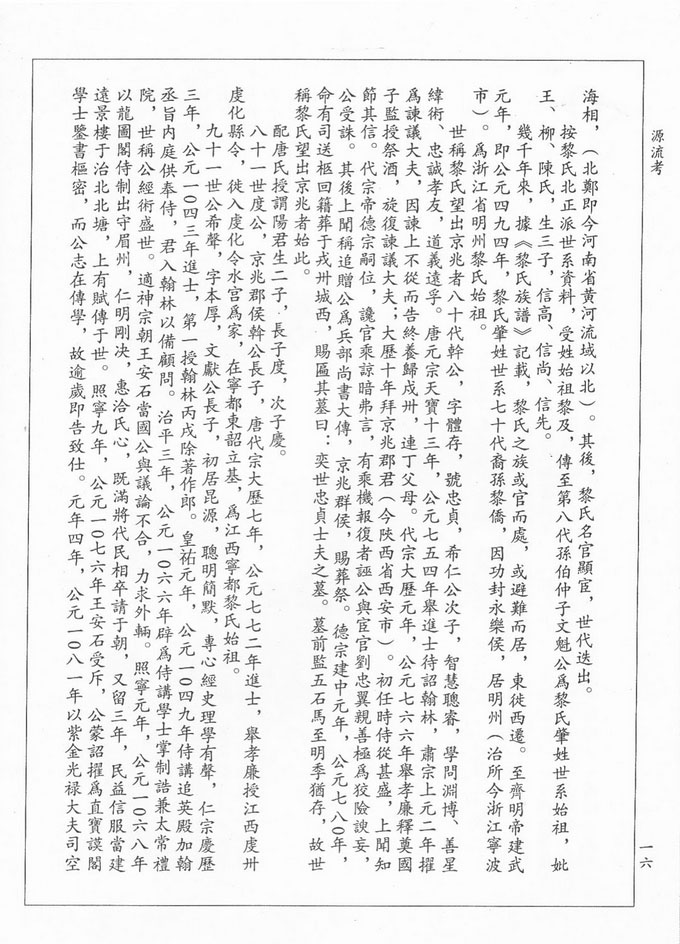 源流考
海相，（北鄭即今河南省黄河流域以北）。其後，黎氏名官顯宦，世代迭出。
按黎氏北正派世系資料，受姓始祖黎及，傳至第八代孫伯仲子文魁公爲黎氏肇姓世系始祖，妣
王、柳、陳氏，生三子，信高、信尚、信先。
幾千年來，據《黎氏族譜》記載，黎氏之族或官而處，或避難而居，東徙西遷。至齊明帝建武
元年，即公元四九四年，黎氏肇姓世系七十代裔孫黎僑，因功封永樂侯，居明州（治所今浙江寧波
市）。爲浙江省明州黎氏始祖。
世稱黎氏望出京兆者八十代幹公，字體存，號忠貞，希仁公次子，智慧聰睿，學問淵博、善星
緯術、忠誠孝友，道義遠孚。唐元宗天寶十三年，公元七五四年舉進士待詔翰林，肅宗上元二年擢
爲諫議大夫，因諫上不從而告終養歸戍卅，連丁父母。代宗大歷元年，公元七六六年舉孝廉釋奠國
子監授祭酒，旋復諫議大夫；大歷十年拜京兆郡君（今陜西省西安市）。初任時侍從甚盛，上聞知
節其信。代宗帝德宗嗣位，讒官乘諒暗弗言，有乘機報復者誣公與宦官劉忠翼親善極爲狡險諛妄，
公受誅。其後上聞稱追贈公爲兵部尚書大傳，京兆群侯，賜葬祭。德宗建中元年，公元七八0年，
命有司送柩回籍葬于戎卅城西，賜匾其墓曰：奕世忠貞士夫之墓。墓前監五石馬至明季猶存，故世
稱黎氏望出京兆者始此。
配唐氏授謂陽君生二子，長子度，次子慶。
八十一世度公，京兆郡侯幹公長子，唐代宗大歷七年，公元七七二年進士，舉孝廉授江西虔卅
虔化縣令，徙入虔化令水宫爲家，在寧都東韶立基，爲江西寧都黎氏始祖。
九十一世公希聲，字本厚，文獻公長子，初居昆源，聰明簡默，專心經史理學有聲，仁宗慶歷
三年，公元一0四三年進士，第一授翰林丙戍除著作郎。皇祐元年，公元一0四九年侍講追英殿加翰
丞旨内庭供奉侍，君入翰林以備顧問。治平三年，公元一0六六年辟爲侍講學士掌制誥兼太常禮
院，世稱公經術盛世。適神宗朝王安石當國公與議論不合，力求外輛。照寧元年，公元一0六八年
以龍圖閣侍制出守眉州，仁明剛决，惠洽民心，既滿將代民相卒請于朝，又留三年，民益信服當建
遠景樓于治北北塘，上有賦傳于世。照寧九年，公元一0七六年王安石受斥，公蒙詔擢爲直寶謨閣
學士鑒書樞密，而公志在傳學，故逾歲即告致仕。元年四年，公元一0八一年以紫金光禄大夫司空
一六